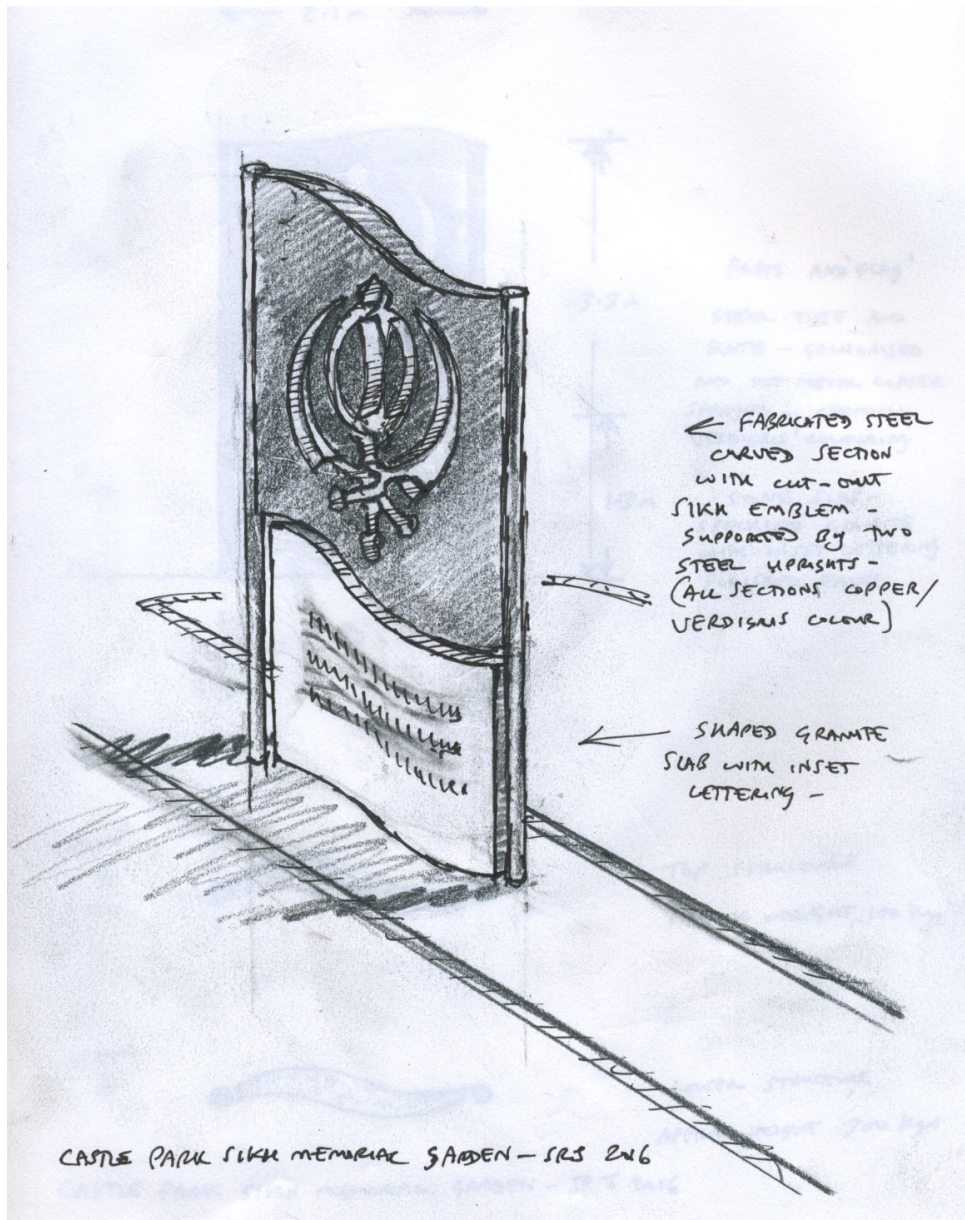 ← FABRICATED STEEL
CURVED SECTION
WITH CUT-OUT
SIKH EMBLEM -
SUPPORTED BY TWO
STEEL UPRIGHTS -
(ALL SECTIONS COPPER/
VERDIGRIS COLOUR)
SHAPED GRANITE
SLAB WITH INSET
LETTERING -
TOP STRUCTURE
CASTLE PARK SIKH MEMORIAL GARDEN - SRS 2016